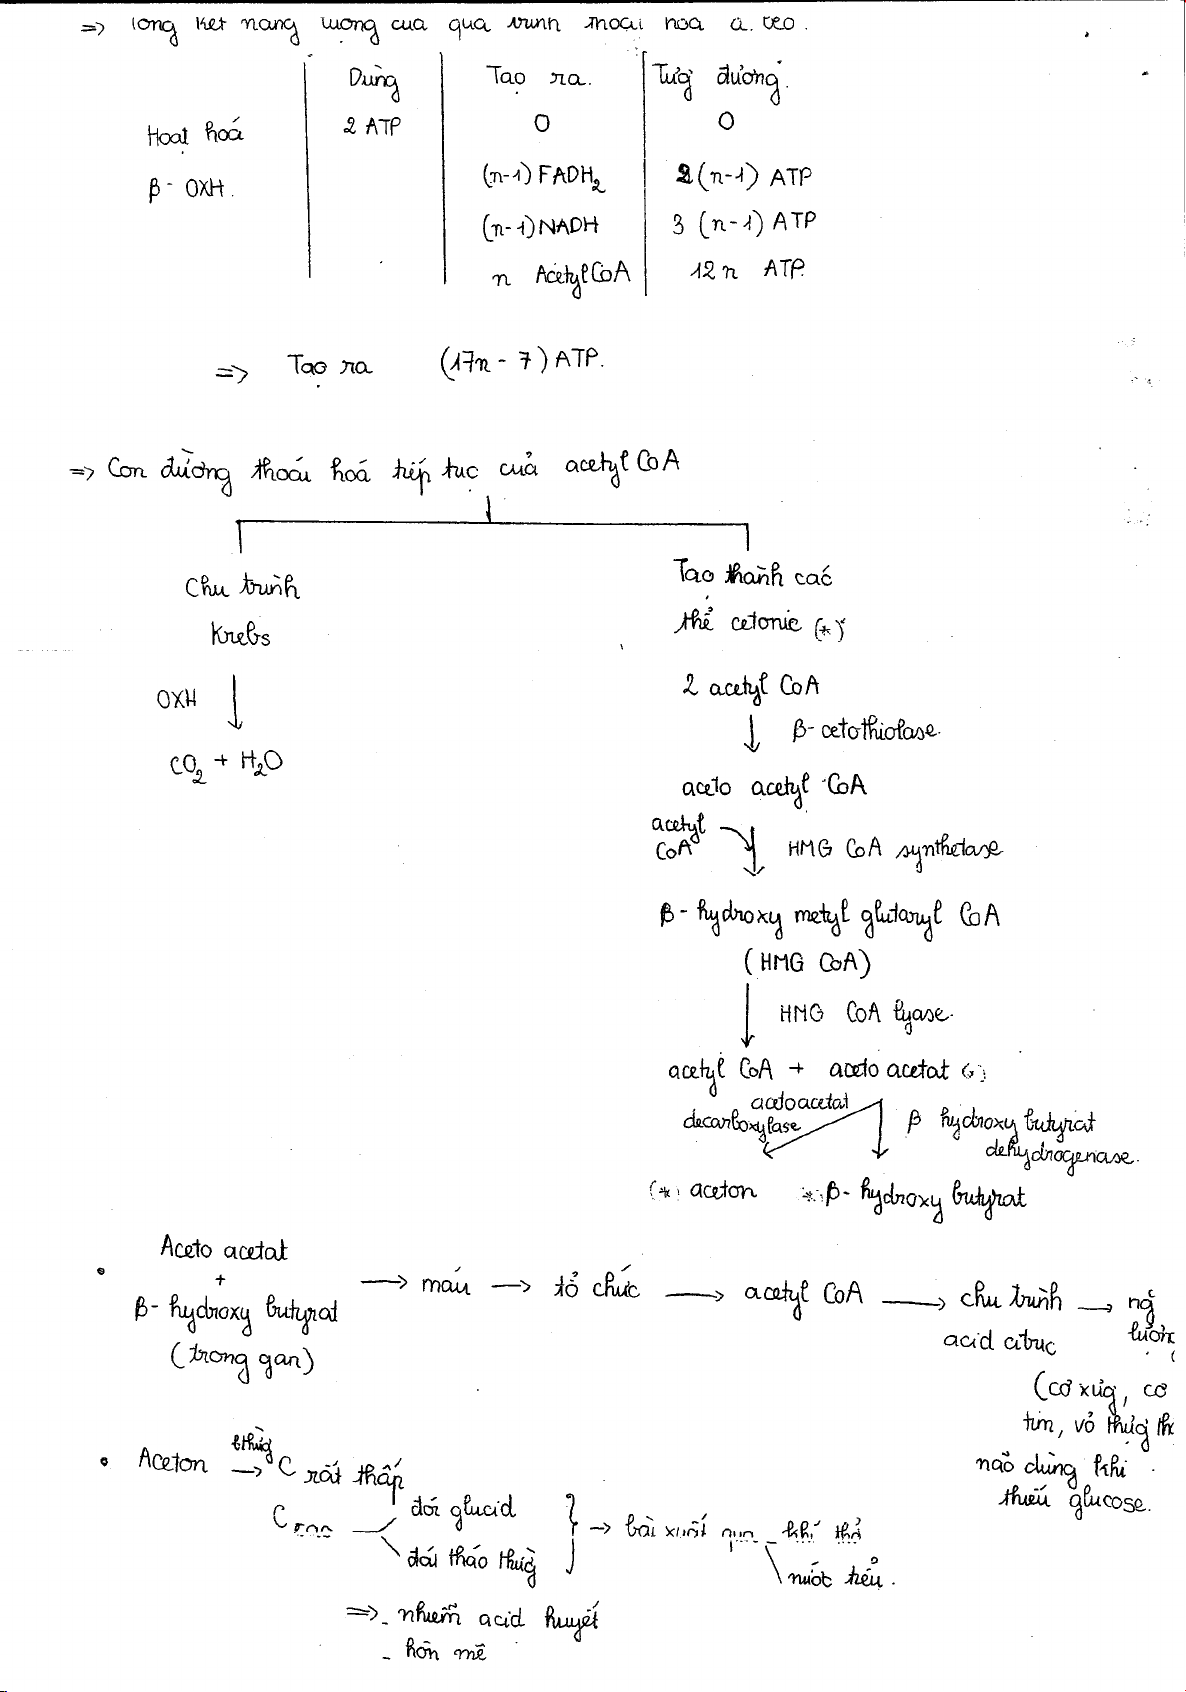 => Tổng kết năng lượng của quá trình thoái hoá a. béo.
Dùng Tạo ra. Tưg đương.
Hoạt hoá 2 ATP 0 0
β - OXH. (n-1) FADH2 2(n-1) ATP
(n-1) NADH 3 (n-1) ATP
n Acetyl CoA 12n ATP.
=> Tạo ra (17n - 7) ATP.
=> Con đường thoái hoá tiếp tục của acetyl CoA
Chu trình
Krebs
OXH
CO2 + H2O
Tạo thành các
thể cetonic (*)
2 acetyl CoA
β- cetothiolase.
aceto acetyl CoA
acetyl
CoA
HMG CoA synthetase
β - hydroxy metyl glutaryl CoA
(HMG CoA)
HMG CoA lyase.
acetyl CoA + aceto acetat
acetoacetat
decarboxylase
β hydroxy butyrat
dehydrogenase.
(*) aceton * β- hydroxy butyrat
• Aceto acetat
+
β- hydroxy butyrat
(trong gan)
→ máu → tổ chức → acetyl CoA → chu trình → ng̃
acid citric lượn
(cơ xưg, cơ
tim, vỏ thượg th
não dùng khi
thiếu glucose.
• Aceton bthườg → C rất thấp
C cao đói glucid } → bài xuất qua khí thở
đái tháo đườg nước tiểu.
=> - nhiễm acid huyết
- hôn mê